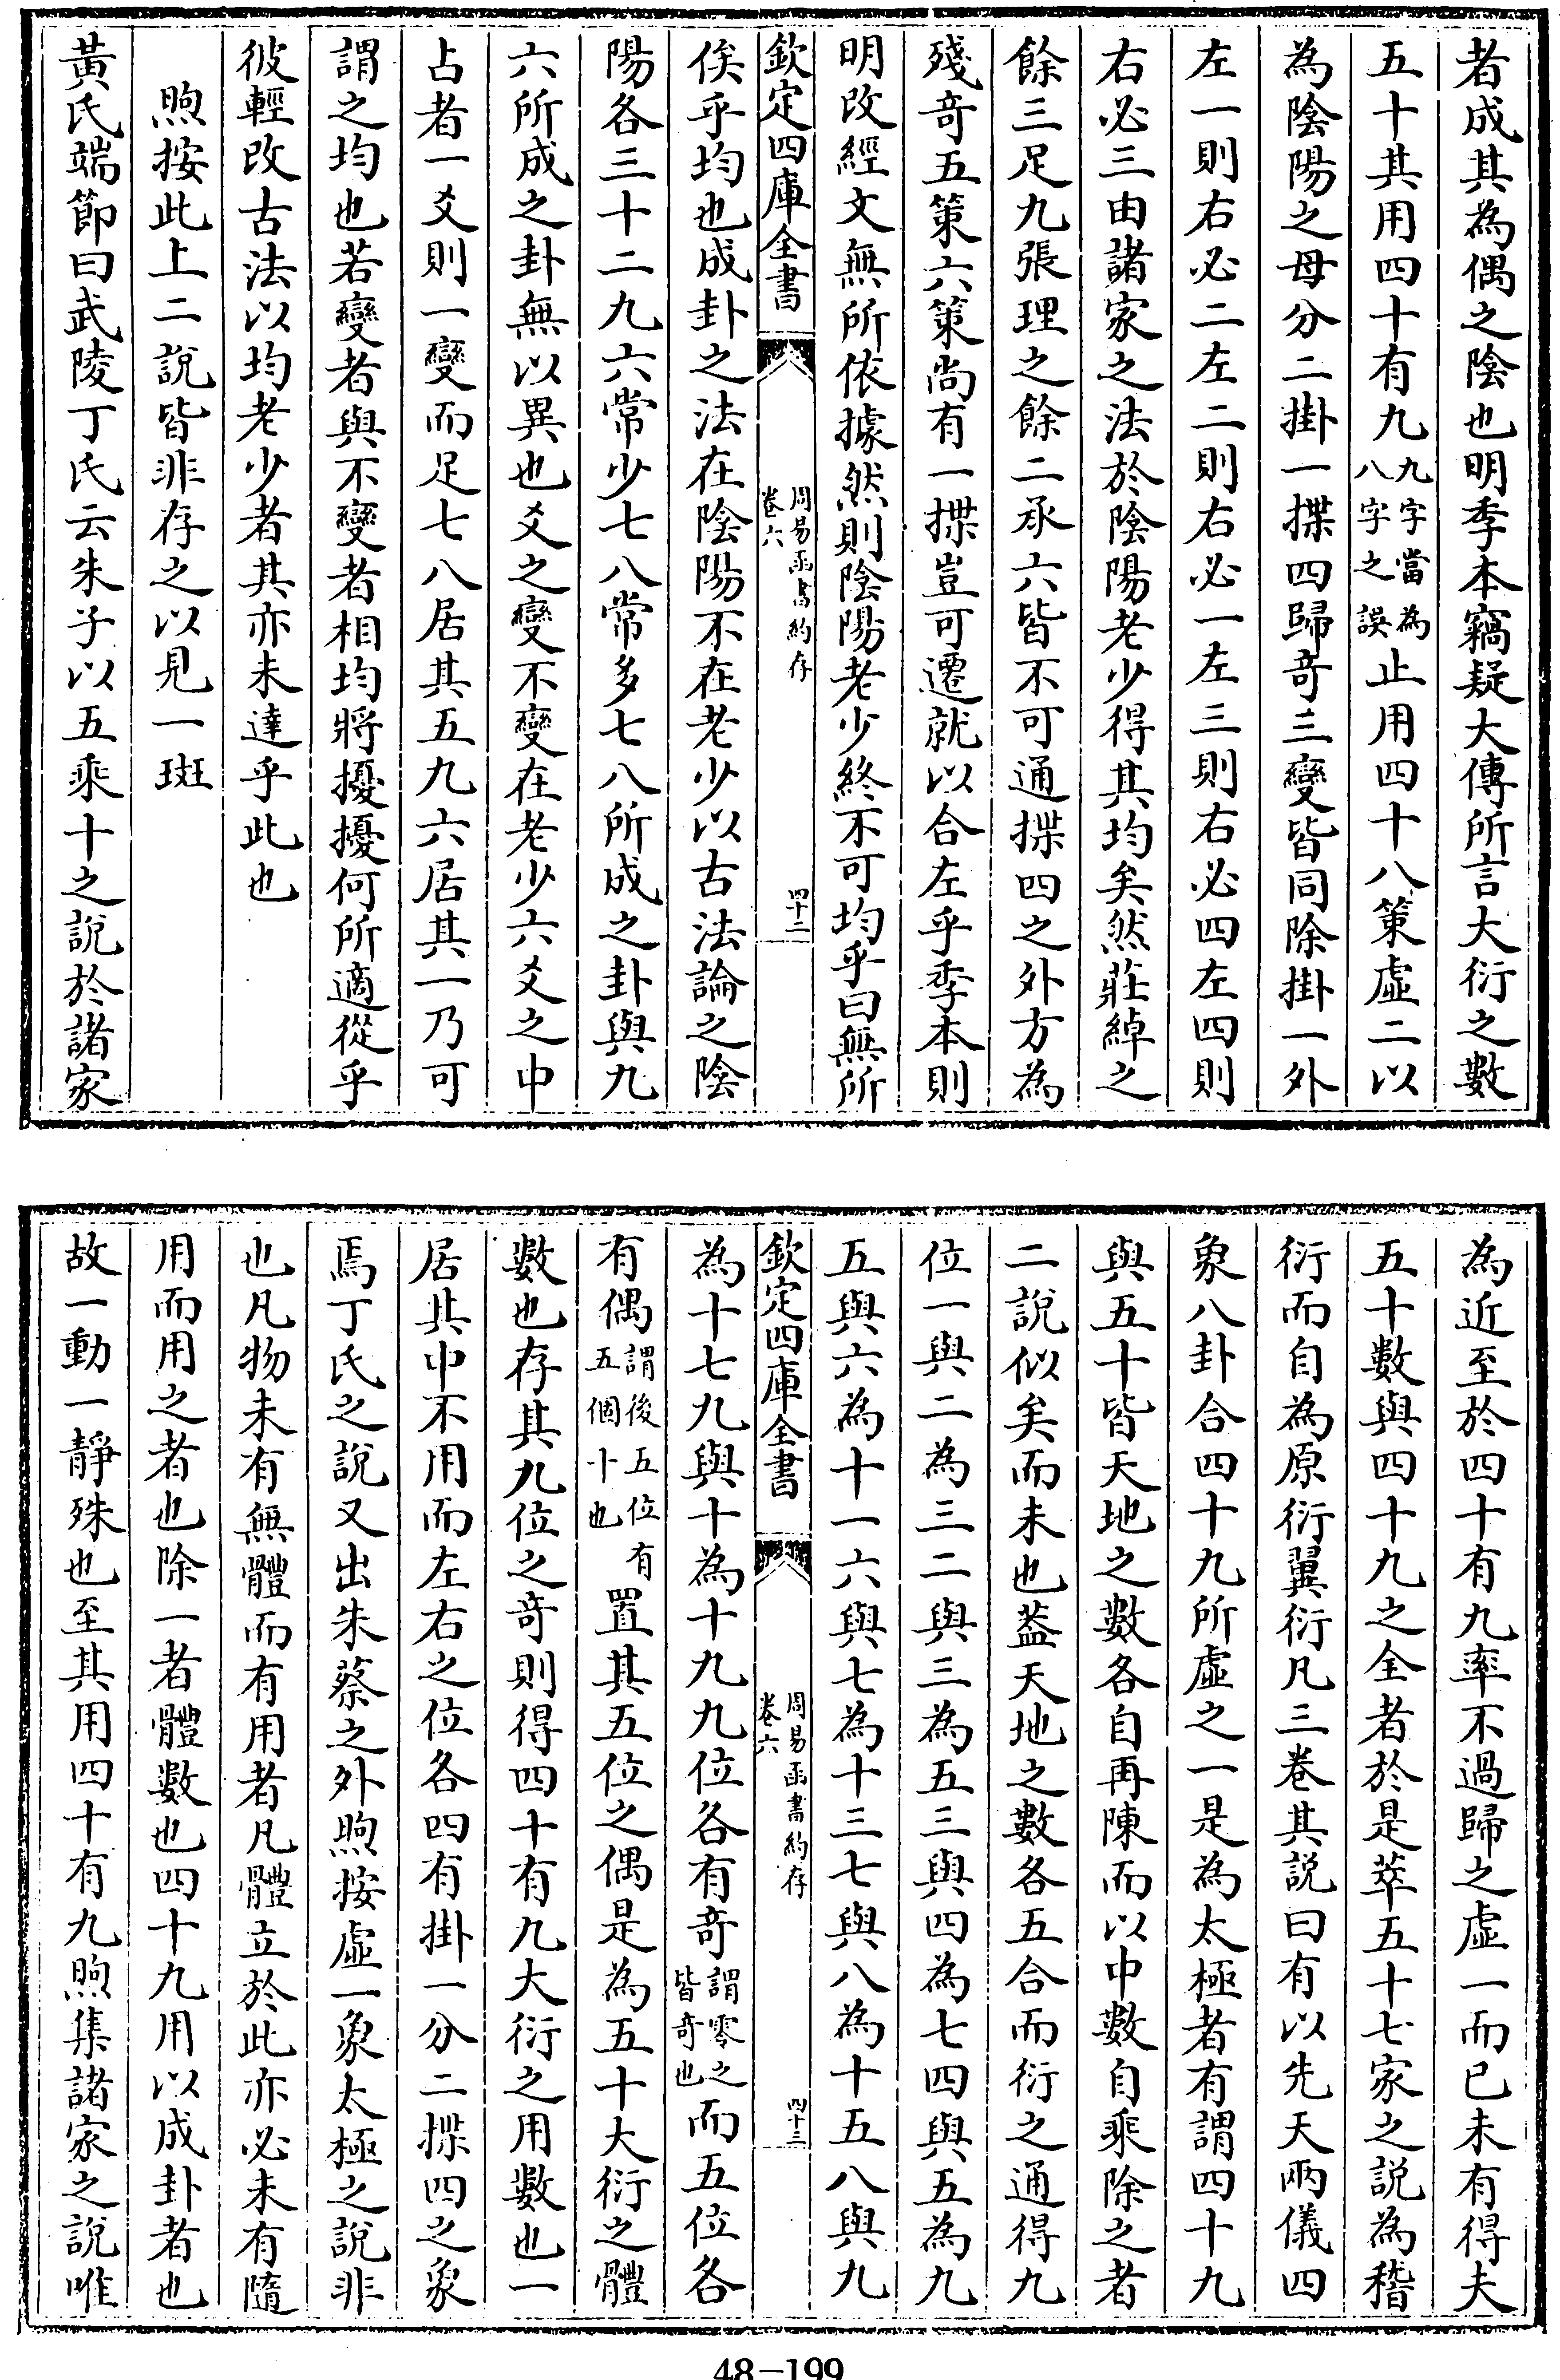 者成其為偶之陰也明季本竊疑大傳所言大衍之數
五十其用四十有九九字當為八字之誤止用四十八策虛二以
為陰陽之母分二掛一揲四歸奇三變皆同除掛一外
左一則右必二左二則右必一左三則右必四左四則
右必三由諸家之法於陰陽老少得其均矣然莊綽之
餘三足九張理之餘二承六皆不可通揲四之外方為
殘奇五策六策尚有一揲豈可遷就以合左乎季本則
明改經文無所依據然則陰陽老少終不可均乎曰無所
欽定四庫全書 周易函書約存 卷六 四十二
俟乎均也成卦之法在陰陽不在老少以古法論之陰
陽各三十二九六常少七八常多七八所成之卦與九
六所成之卦無以異也爻之變不變在老少六爻之中
占者一爻則一變而足七八居其五九六居其一乃可
謂之均也若變者與不變者相均將擾擾何所適從乎
彼輕改古法以均老少者其亦未達乎此也
煦按此上二說皆非存之以見一斑
黃氏端節曰武陵丁氏云朱子以五乘十之說於諸家
為近至於四十有九率不過歸之虛一而已未有得夫
五十數與四十九之全者於是萃五十七家之說為稽
衍而自為原衍翼衍凡三卷其說曰有以先天兩儀四
象八卦合四十九所虛之一是為太極者有謂四十九
與五十皆天地之數各自再陳而以中數自乘除之者
二說似矣而未也葢天地之數各五合而衍之通得九
位一與二為三二與三為五三與四為七四與五為九
五與六為十一六與七為十三七與八為十五八與九
欽定四庫全書 周易函書約存 卷六 四十三
為十七九與十為十九九位各有奇謂零之皆奇也而五位各
有偶謂後五位有五個十也置其五位之偶是為五十大衍之體
數也存其九位之奇則得四十有九大衍之用數也一
居其中不用而左右之位各四有掛一分二揲四之象
焉丁氏之說又出朱蔡之外煦按虛一象太極之說非
也凡物未有無體而有用者凡體立於此亦必未有隨
用而用之者也除一者體數也四十九用以成卦者也
故一動一靜殊也至其用四十有九煦集諸家之說唯
48-199